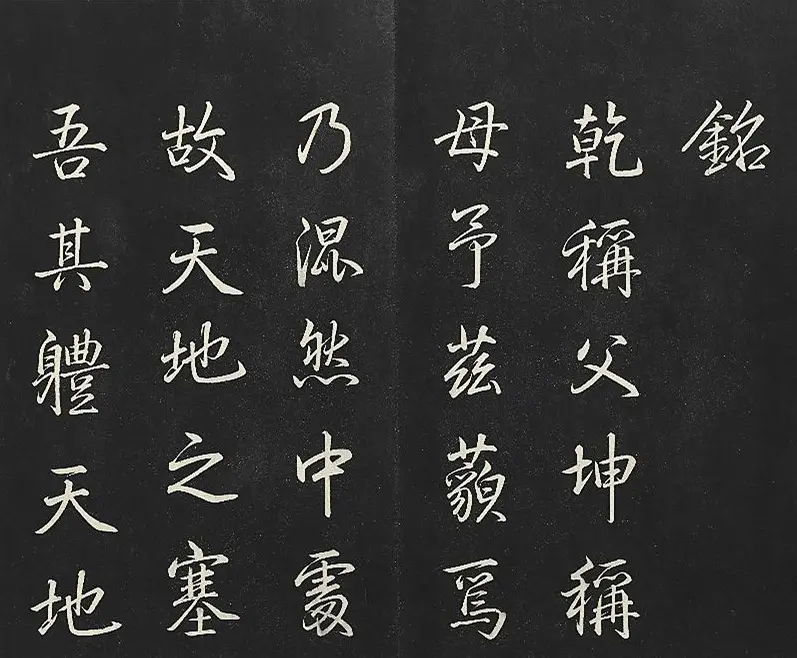 銘
乾稱父坤稱
母予茲藐焉
乃混然中處
故天地之塞
吾其體天地